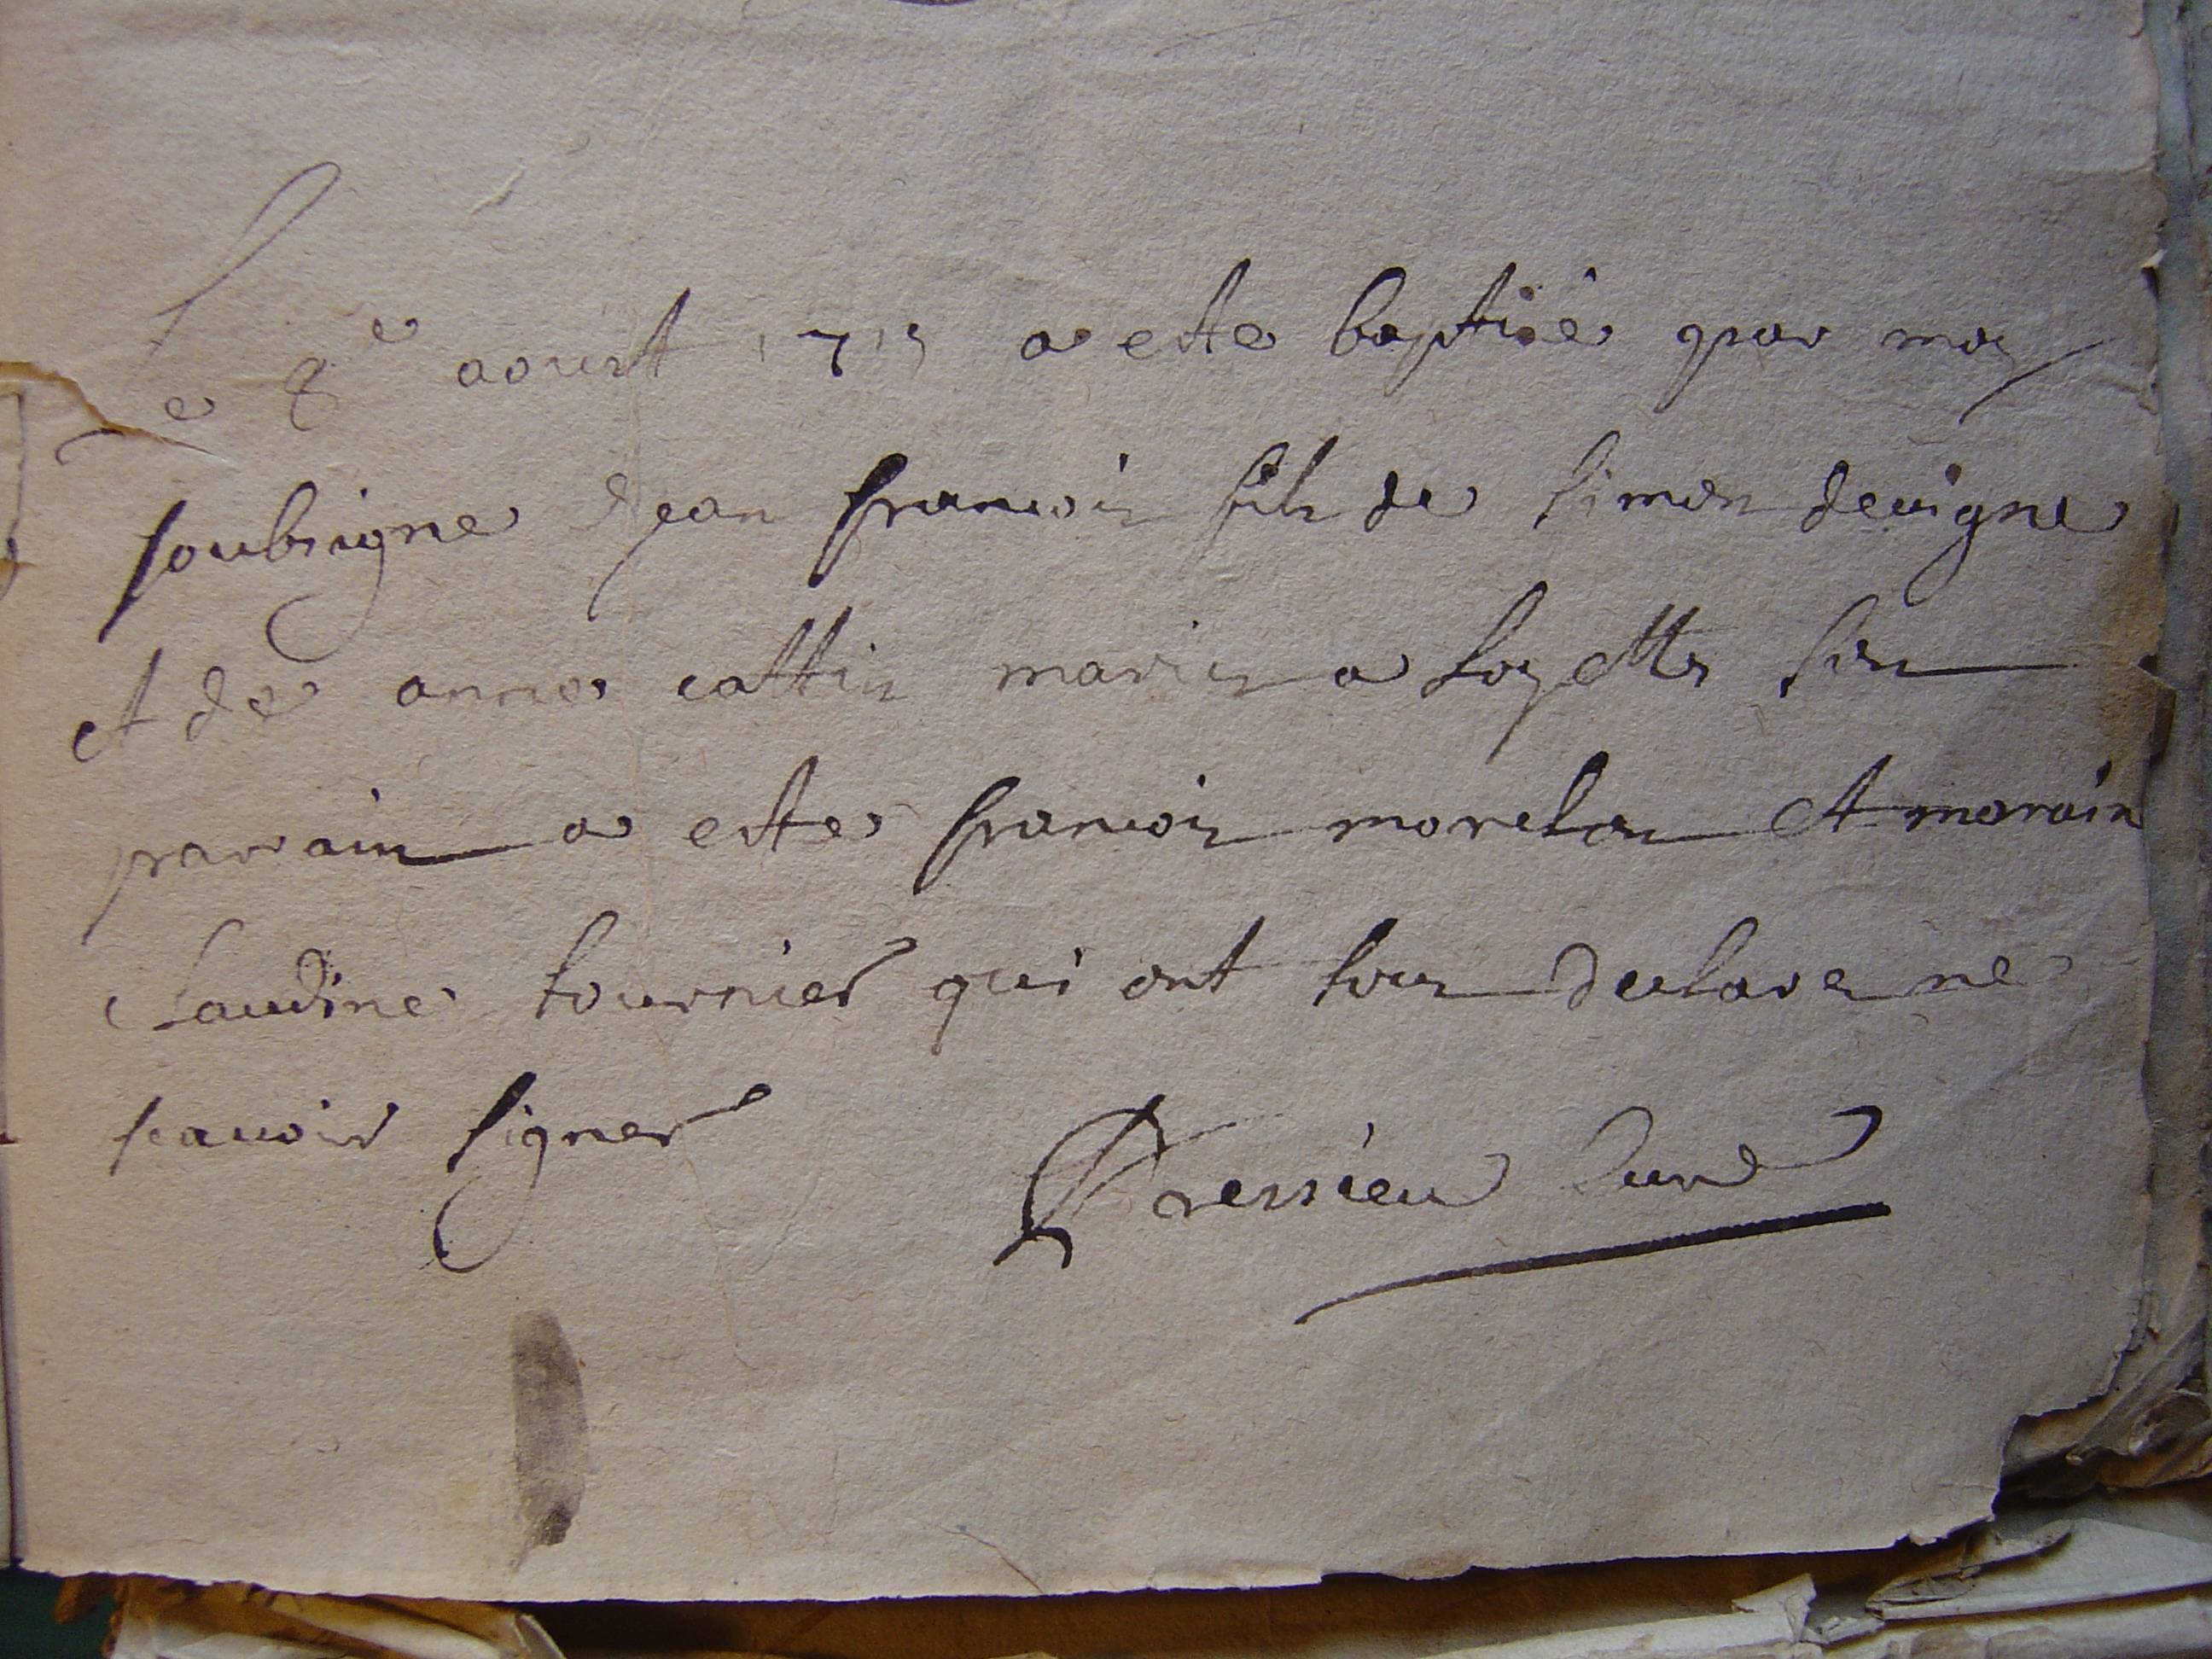 Le 8e aoust 1715 a este baptisé par moy
soubsigne Jean francois fils de Simon devigne
et de anne cattin maries a Loyettes son
parrain a este francois morelon et marain
Claudine tournier qui ont tous declares ne
scauoir signer
Dressieu Curé